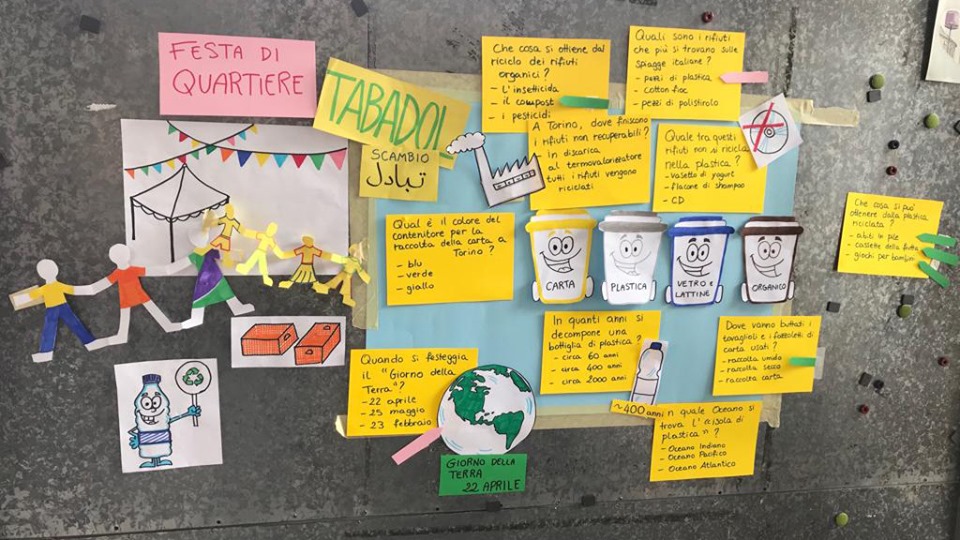 FESTA DI
QUARTIERE
TABADOL
SCAMBIO
تبادل
Che cosa si ottiene dal
riciclo dei rifiuti
organici?
- L'insetticida
- il compost
- i pesticidi
Quali sono i rifiuti
che più si trovano sulle
spiagge italiane?
- pezzi di plastica
- cotton fioc
- pezzi di polistirolo
A Torino, dove finiscono
i rifiuti non recuperabili?
in discarica
al termovalorizzatore
tutti i rifiuti vengono
riciclati
Quale tra questi
rifiuti non si ricicla
nella plastica?
- vasetto di yogurt
- flacone di shampoo
- CD
Che cosa si può
ottenere dalla plastica
riciclata?
- abiti in pile
- cassette della frutta
- giochi per bambini
Qual è il colore del
contenitore per la
raccolta della carta a
Torino?
- blu
- verde
- giallo
CARTA
PLASTICA
VETRO E
LATTINE
ORGANICO
In quanti anni si
decompone una
bottiglia di plastica?
- circa 60 anni
- circa 400 anni
- circa 2000 anni
Dove vanno buttati i
tovaglioli e i fazzoletti di
carta usati?
- raccolta umido
- raccolta secco
- raccolta carta
Quando si festeggia
il "Giorno della
Terra"?
- 22 aprile
- 25 maggio
- 23 febbraio
~400 anni
n quale Oceano si
trova l'"isola di
plastica"?
- Oceano Indiano
- Oceano Pacifico
- Oceano Atlantico
GIORNO DELLA
TERRA
22 APRILE